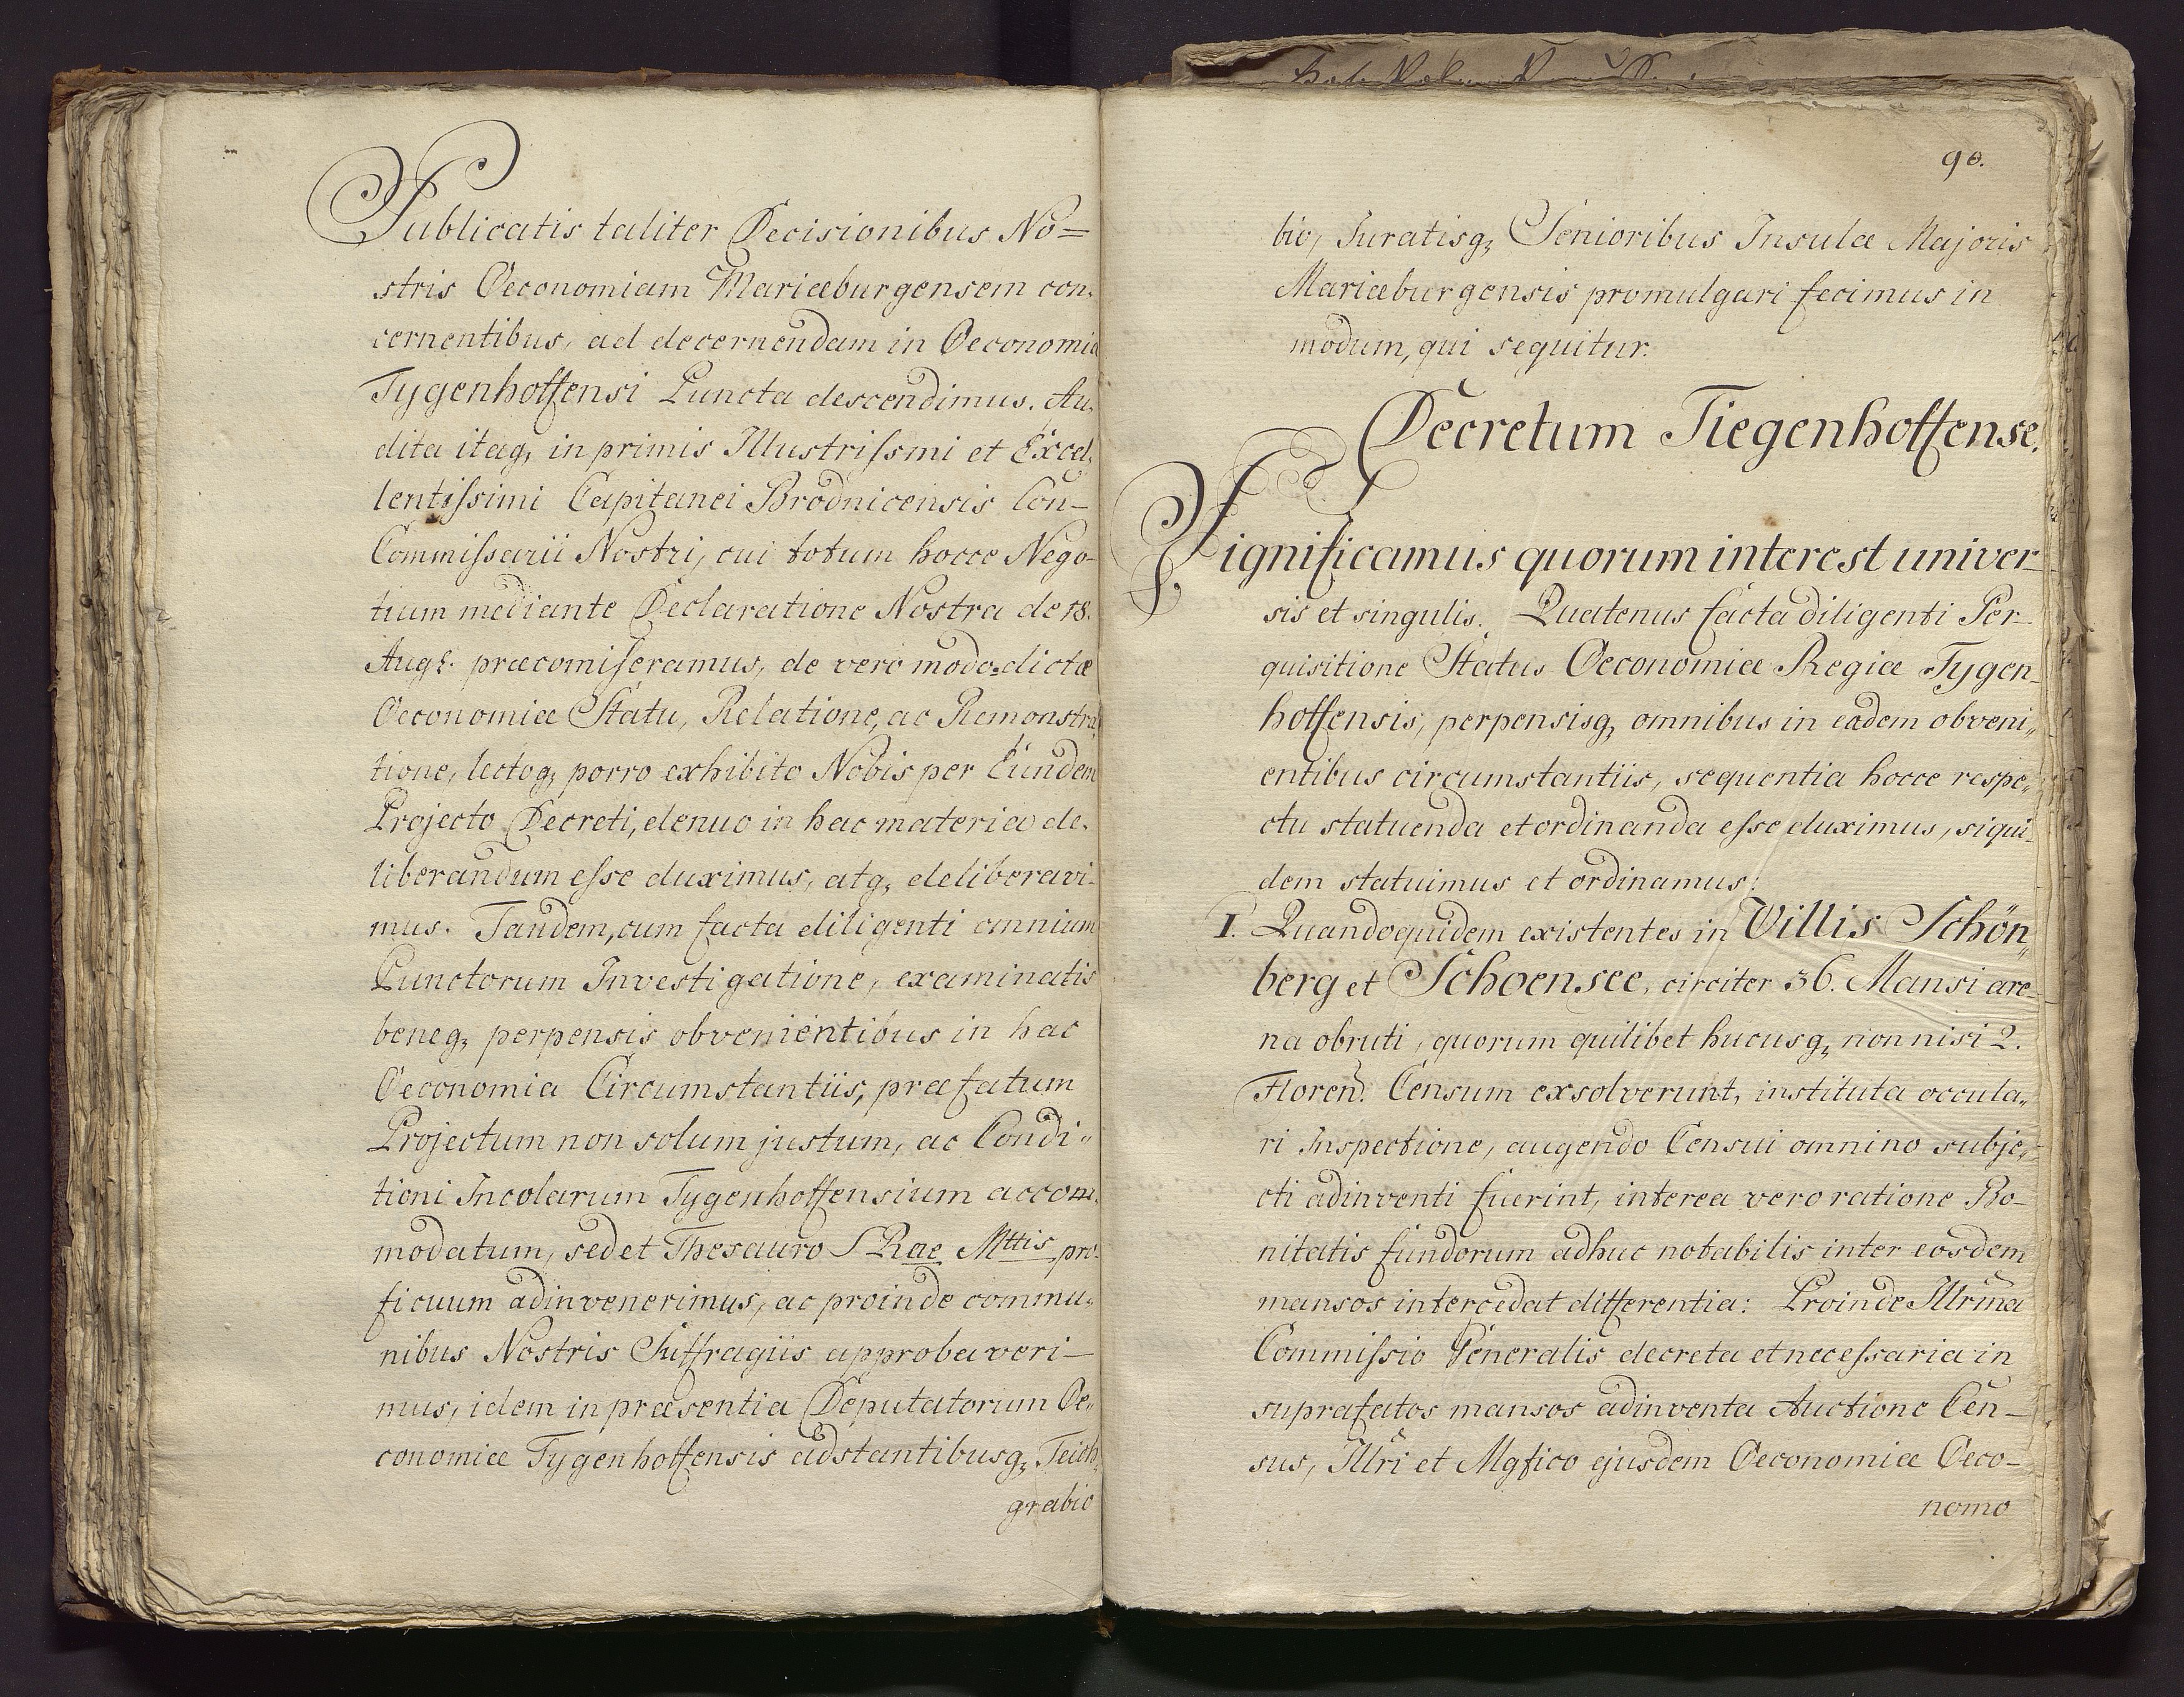 Publicatis taliter Decisionibus No=
stris Oeconomiam Mariæburgensem con,
cernentibus, ad decernendam in Oeconomia
Tygenhoffensi Puncta descendimus. Au,
dita itaq, in primis Illustrissmi et Excel,
lentissimi Capitanei Brodnicensis Con-
Commissarii Nostri, cui totum hocce Nego-
tium mediante Declaratione Nostra de 18.
Aug. præcomiseramus, de vero modo=dictæ
Oeconomiæ Statu, Relatione, ac Remonstra,
tione, lectoq, porro exhibito Nobis per Eundem
Projecto Decreti, denuo in hac materia de,
liberandum esse duximus, atq, deliberavi-
mus. Tandem, cum facta diligenti omnium
Punctorum Investigatione, examinatis
beneq, perpensis obvenientibus in hac
Oeconomia Circumstantiis, præfatum
Projectum non solum justum, ac Condi"
tioni Incolarum Tygenhoffensium accom,
modatum, sed et Thesauro S Rae Mttis pro-
ficuum adinvenerimus, ac proinde commu,
nibus Nostris Suffragiis approbaveri-
mus, idem in præsentia Deputatorum Oe,
conomiæ Tygenhoffensis adstantibusq, Teich,
grabio
90.
bio, Juratisq, Senioribus Insulæ Majoris
Mariæburgensis promulgari fecimus in
modum, qui sequitur.
Decretum Tiegenhoffense.
Significamus quorum interest univer-
sis et singulis. Quatenus facta diligenti Per-
quisitione Status Oeconomiæ Regiæ Tygen-
hoffensis, perpensisq, omnibus in eadem obveni"
entibus circumstantiis, sequentia hocce respe"
ctu statuenda et ordinanda esse duximus, siqui-
dem statuimus et ordinamus:
I. Quandoquidem existentes in Villis Schön"
berg et Schoensee, circiter 36. Mansi are-
na obruti, quorum quilibet hucusq, non nisi 2.
Floren. Censum exsolverunt, instituta occula"
ri Inspectione, augendo Censui omnino subje,
cti adinventi fuerint, interea vero ratione Bo-
nitatis fundorum adhuc notabilis inter eosdem
mansos intercedat differentia: Proinde Illrma
Commissio Generalis decreta et necessaria in
suprafatos mansos adinventa Auctione Cen-
sus, Illri et Mgfico ejusdem Oeconomiæ Oeco-
nomo